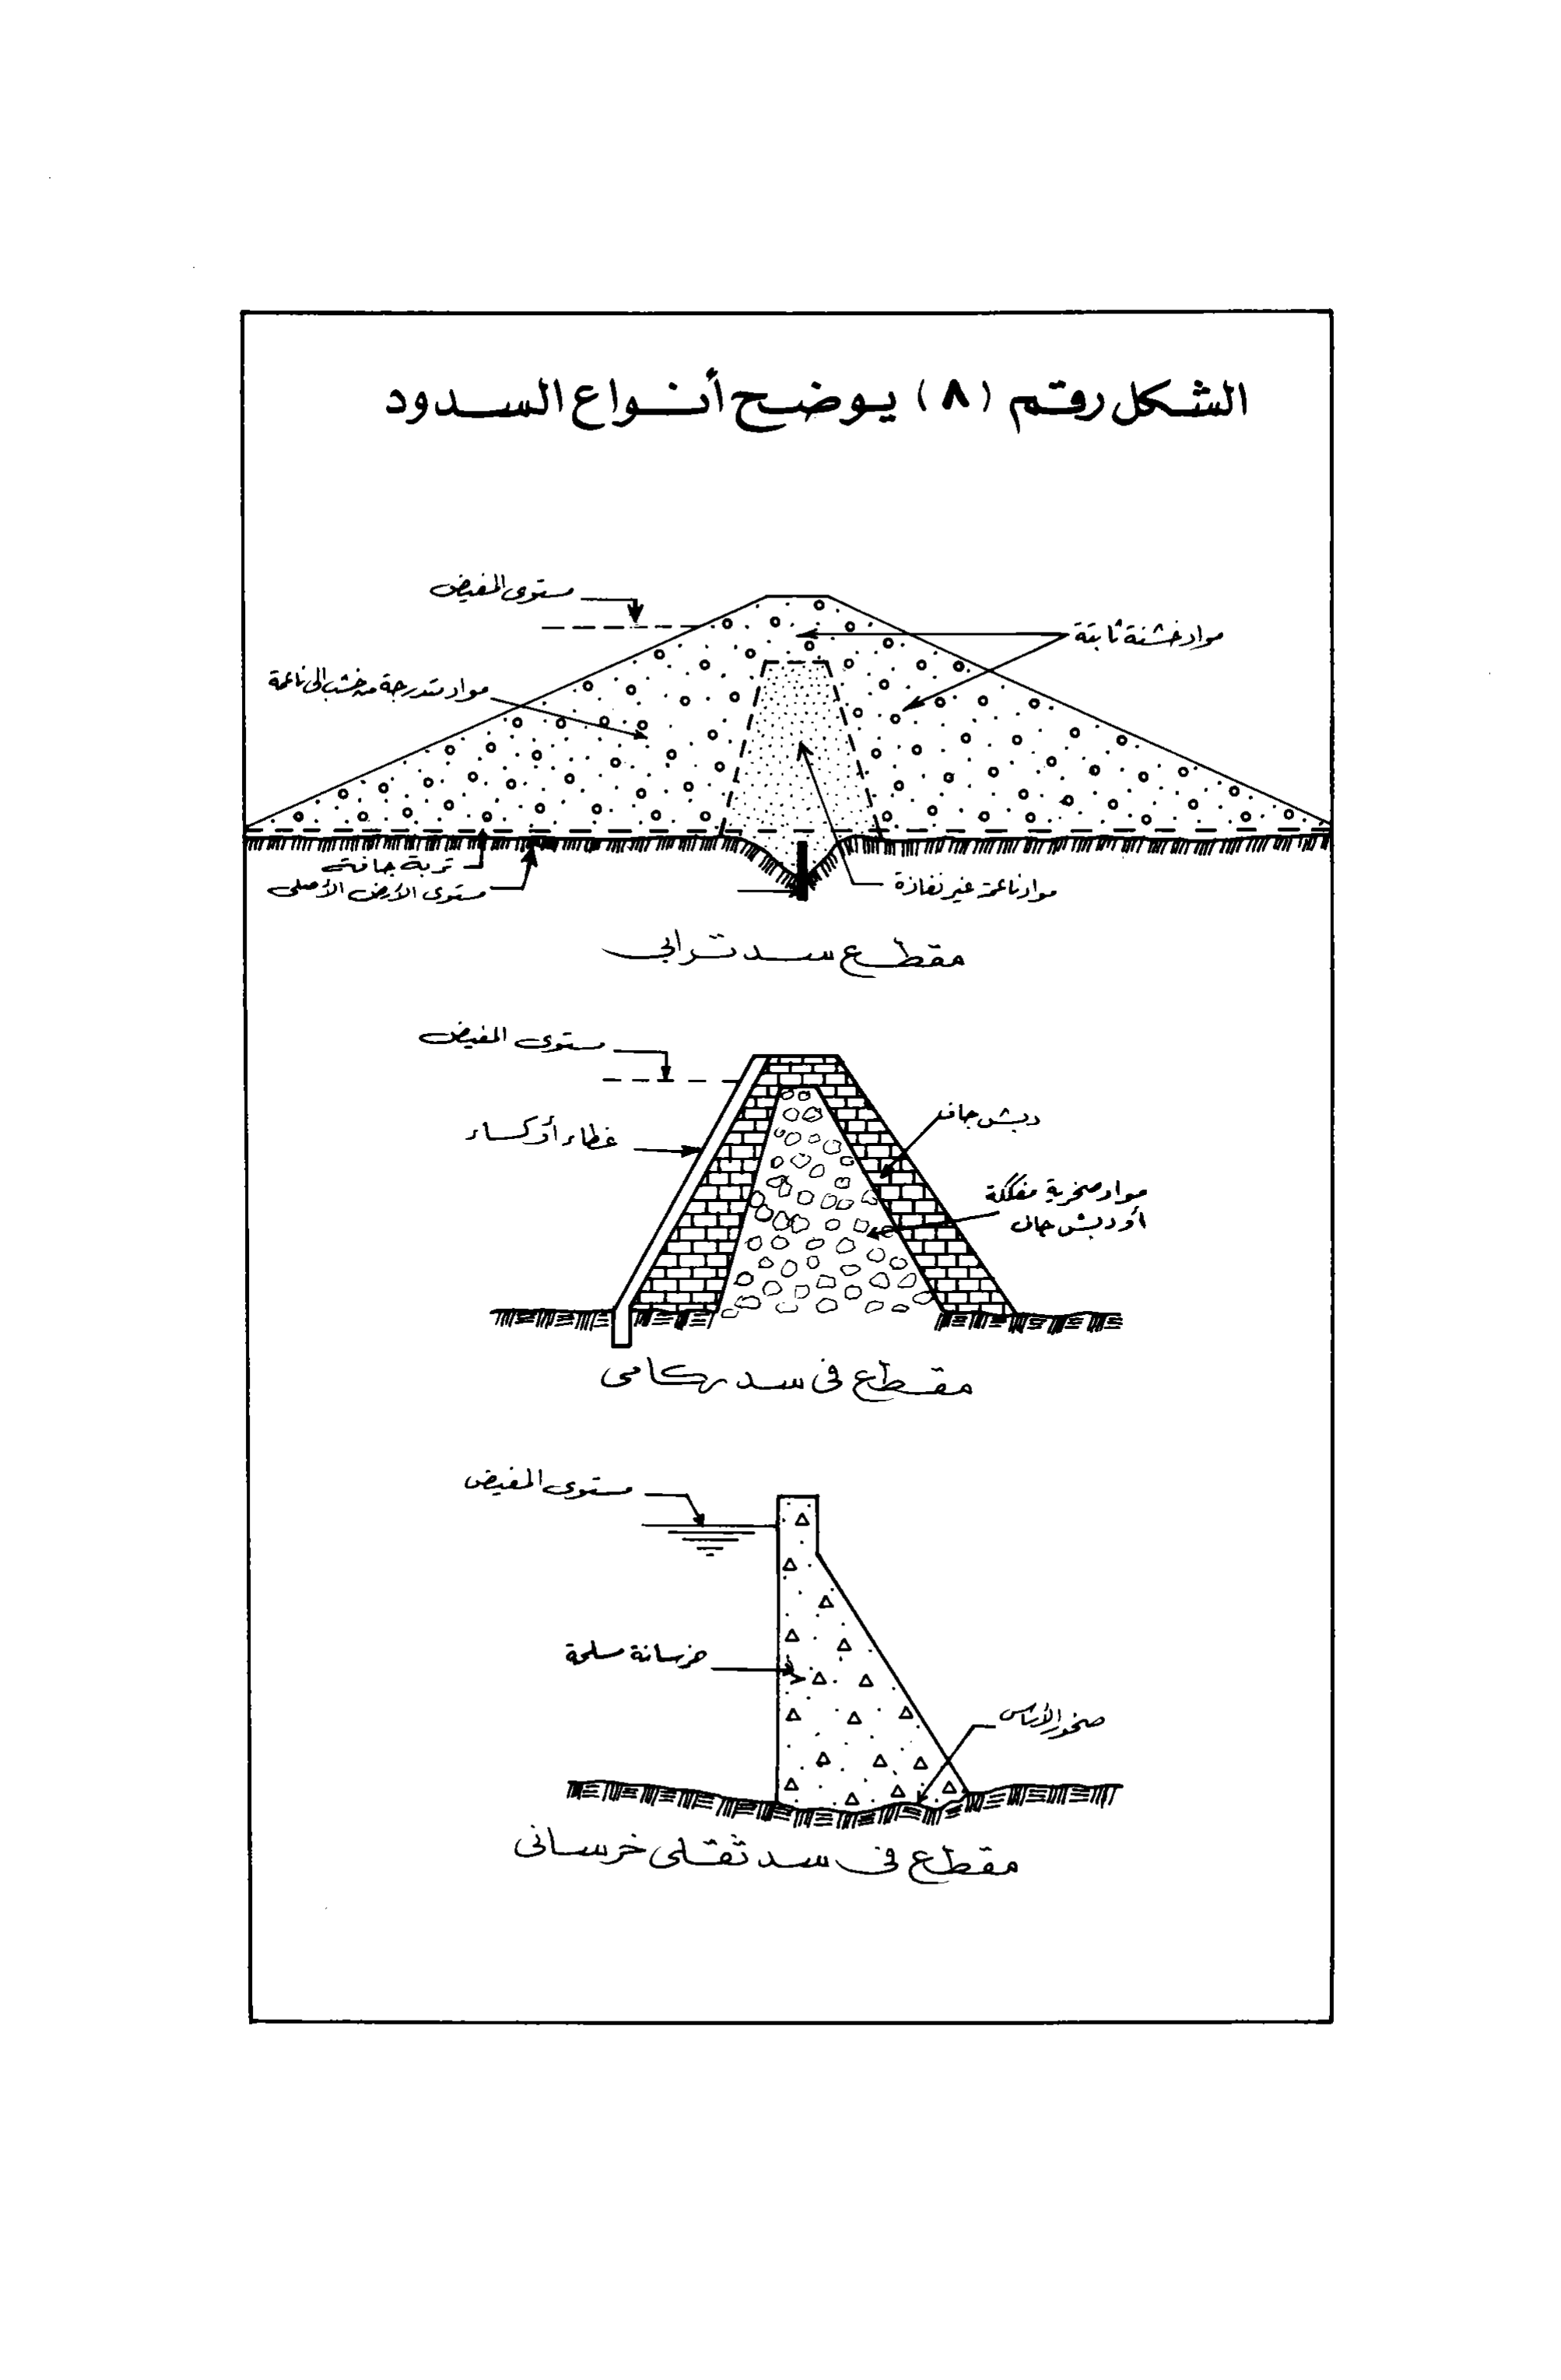 الشكل رقم (٨) يوضح أنواع السدود
مستوى المفيض
مواد خشنة ثابتة
مواد متدرجة من خشب الى ناعمة
تربة جافة
مستوى الأرض الأصلى
مواد ناعمة غير نفاذة
مقطع سد ترابي
مستوى المفيض
غطاء أو كساء
دبش جاف
مواد صخرية مفككة
أو دبش جاف
مقطع في سد ركامى
مستوى المفيض
خرسانة مسلحة
صخور الأساس
مقطع في سد ثقلى خرسانى